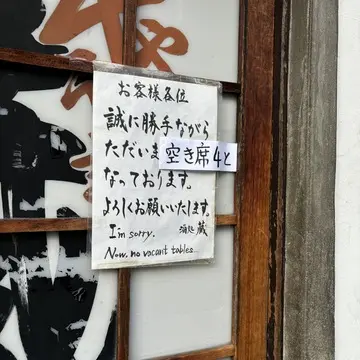 お客様各位
誠に勝手ながら
ただいま空き席4と
なっております。
よろしくお願いいたします。
I'm sorry. 酒処 蔵
Now, no vacant tables...